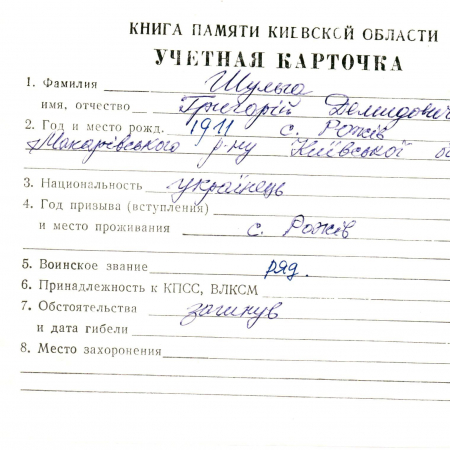 КНИГА ПАМЯТИ КИЕВСКОЙ ОБЛАСТИ
УЧЕТНАЯ КАРТОЧКА
1. Фамилия Шульга
имя, отчество Григорій Демидович
2. Год и место рожд. 1911 с. Рожів
Макарівського р-ну Київської
3. Национальность українець
4. Год призыва (вступления)
и место проживания с. Рожів
5. Воинское звание ряд.
6. Принадлежность к КПСС, ВЛКСМ
7. Обстоятельства загинув
и дата гибели
8. Место захоронения